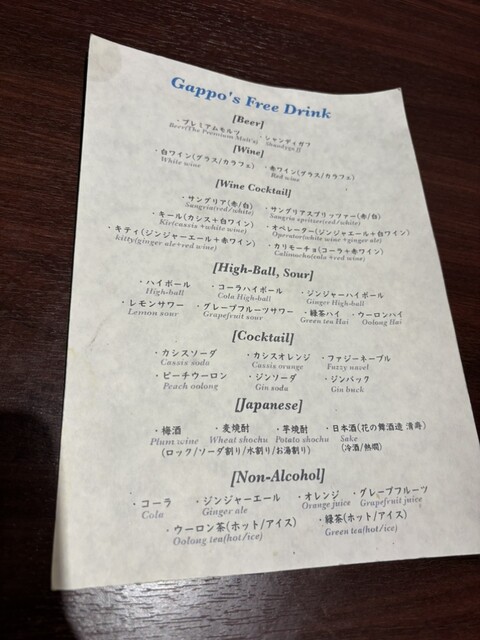 Gappo's Free Drink
[Beer]
・プレミアムモルツ ・シャンディガフ
Beer(The Premium Malt's) Shandygaff
[Wine]
・白ワイン(グラス/カラフェ) ・赤ワイン(グラス/カラフェ)
White wine Red wine
[Wine Cocktail]
・サングリア(赤/白) ・サングリアスプリッツァー(赤/白)
Sangria(red/white) Sangria spritzer(red/white)
・キール(カシス+白ワイン) ・オペレーター(ジンジャーエール+白ワイン)
Kir(cassis+white wine) Operator(white wine+ginger ale)
・キティ(ジンジャーエール+赤ワイン) ・カリモーチョ(コーラ+赤ワイン)
kitty(ginger ale+red wine) Calimocho(cola+red wine)
[High-Ball, Sour]
・ハイボール ・コーラハイボール ・ジンジャーハイボール
High-ball Cola High-ball Ginger High-ball
・レモンサワー ・グレープフルーツサワー ・緑茶ハイ ・ウーロンハイ
Lemon sour Grapefruit sour Green tea Hai Oolong Hai
[Cocktail]
・カシスソーダ ・カシスオレンジ ・ファジーネーブル
Cassis soda Cassis orange Fuzzy navel
・ピーチウーロン ・ジンソーダ ・ジンバック
Peach oolong Gin soda Gin buck
[Japanese]
・梅酒 ・麦焼酎 ・芋焼酎 ・日本酒(花の舞酒造 清寿)
Plum wine Wheat shochu Potato shochu Sake
(ロック/ソーダ割り/水割り/お湯割り) (冷酒/熱燗)
[Non-Alcohol]
・コーラ ・ジンジャーエール ・オレンジ ・グレープフルーツ
Cola Ginger ale Orange juice Grapefruit juice
・ウーロン茶(ホット/アイス) ・緑茶(ホット/アイス)
Oolong tea(hot/ice) Green tea(hot/ice)